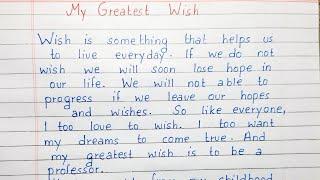 My Greatest Wish
Wish is something that helps us
to live everyday. If we do not
wish we will soon lose hope in
our life. We will not able to
progress if we leave our hopes
and wishes. So like everyone,
I too love to wish. I too want
my dreams to come true. And
my greatest wish is to be a
professor.
from my childhood